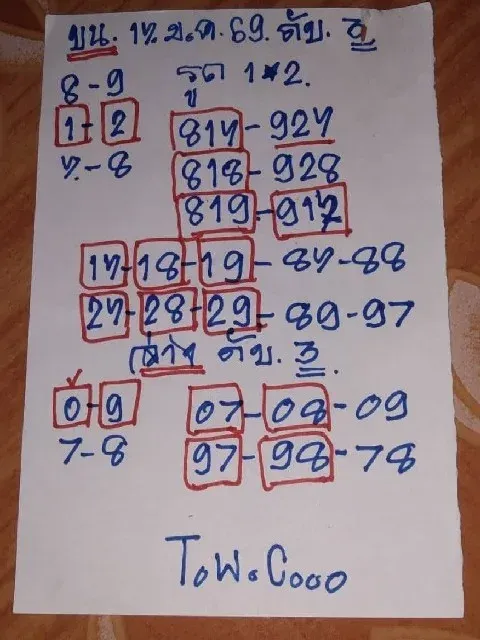 บน. 17.ม.ค.69. ดับ.
8-9 รูด 1*2.
1-2 817-927
7-8 818-928
819-917
17-18-19-87-88
27-28-29-89-97
ล่าง ดับ. 3.
0-9 07-08-09
7-8 97-98-78
T.W.Cooo